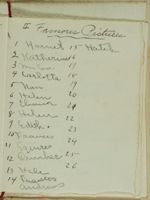 II Famous Pictures
1 Harriet 15 Hatch
2 Katharine 16
3 17
4 Carlotta 18
5 Nan 19
6 Helen 20
7 Eleanor 21
8 Helen 22
9 Edith 23
10 Frances 24
11 Squires 25
12 26
13
14